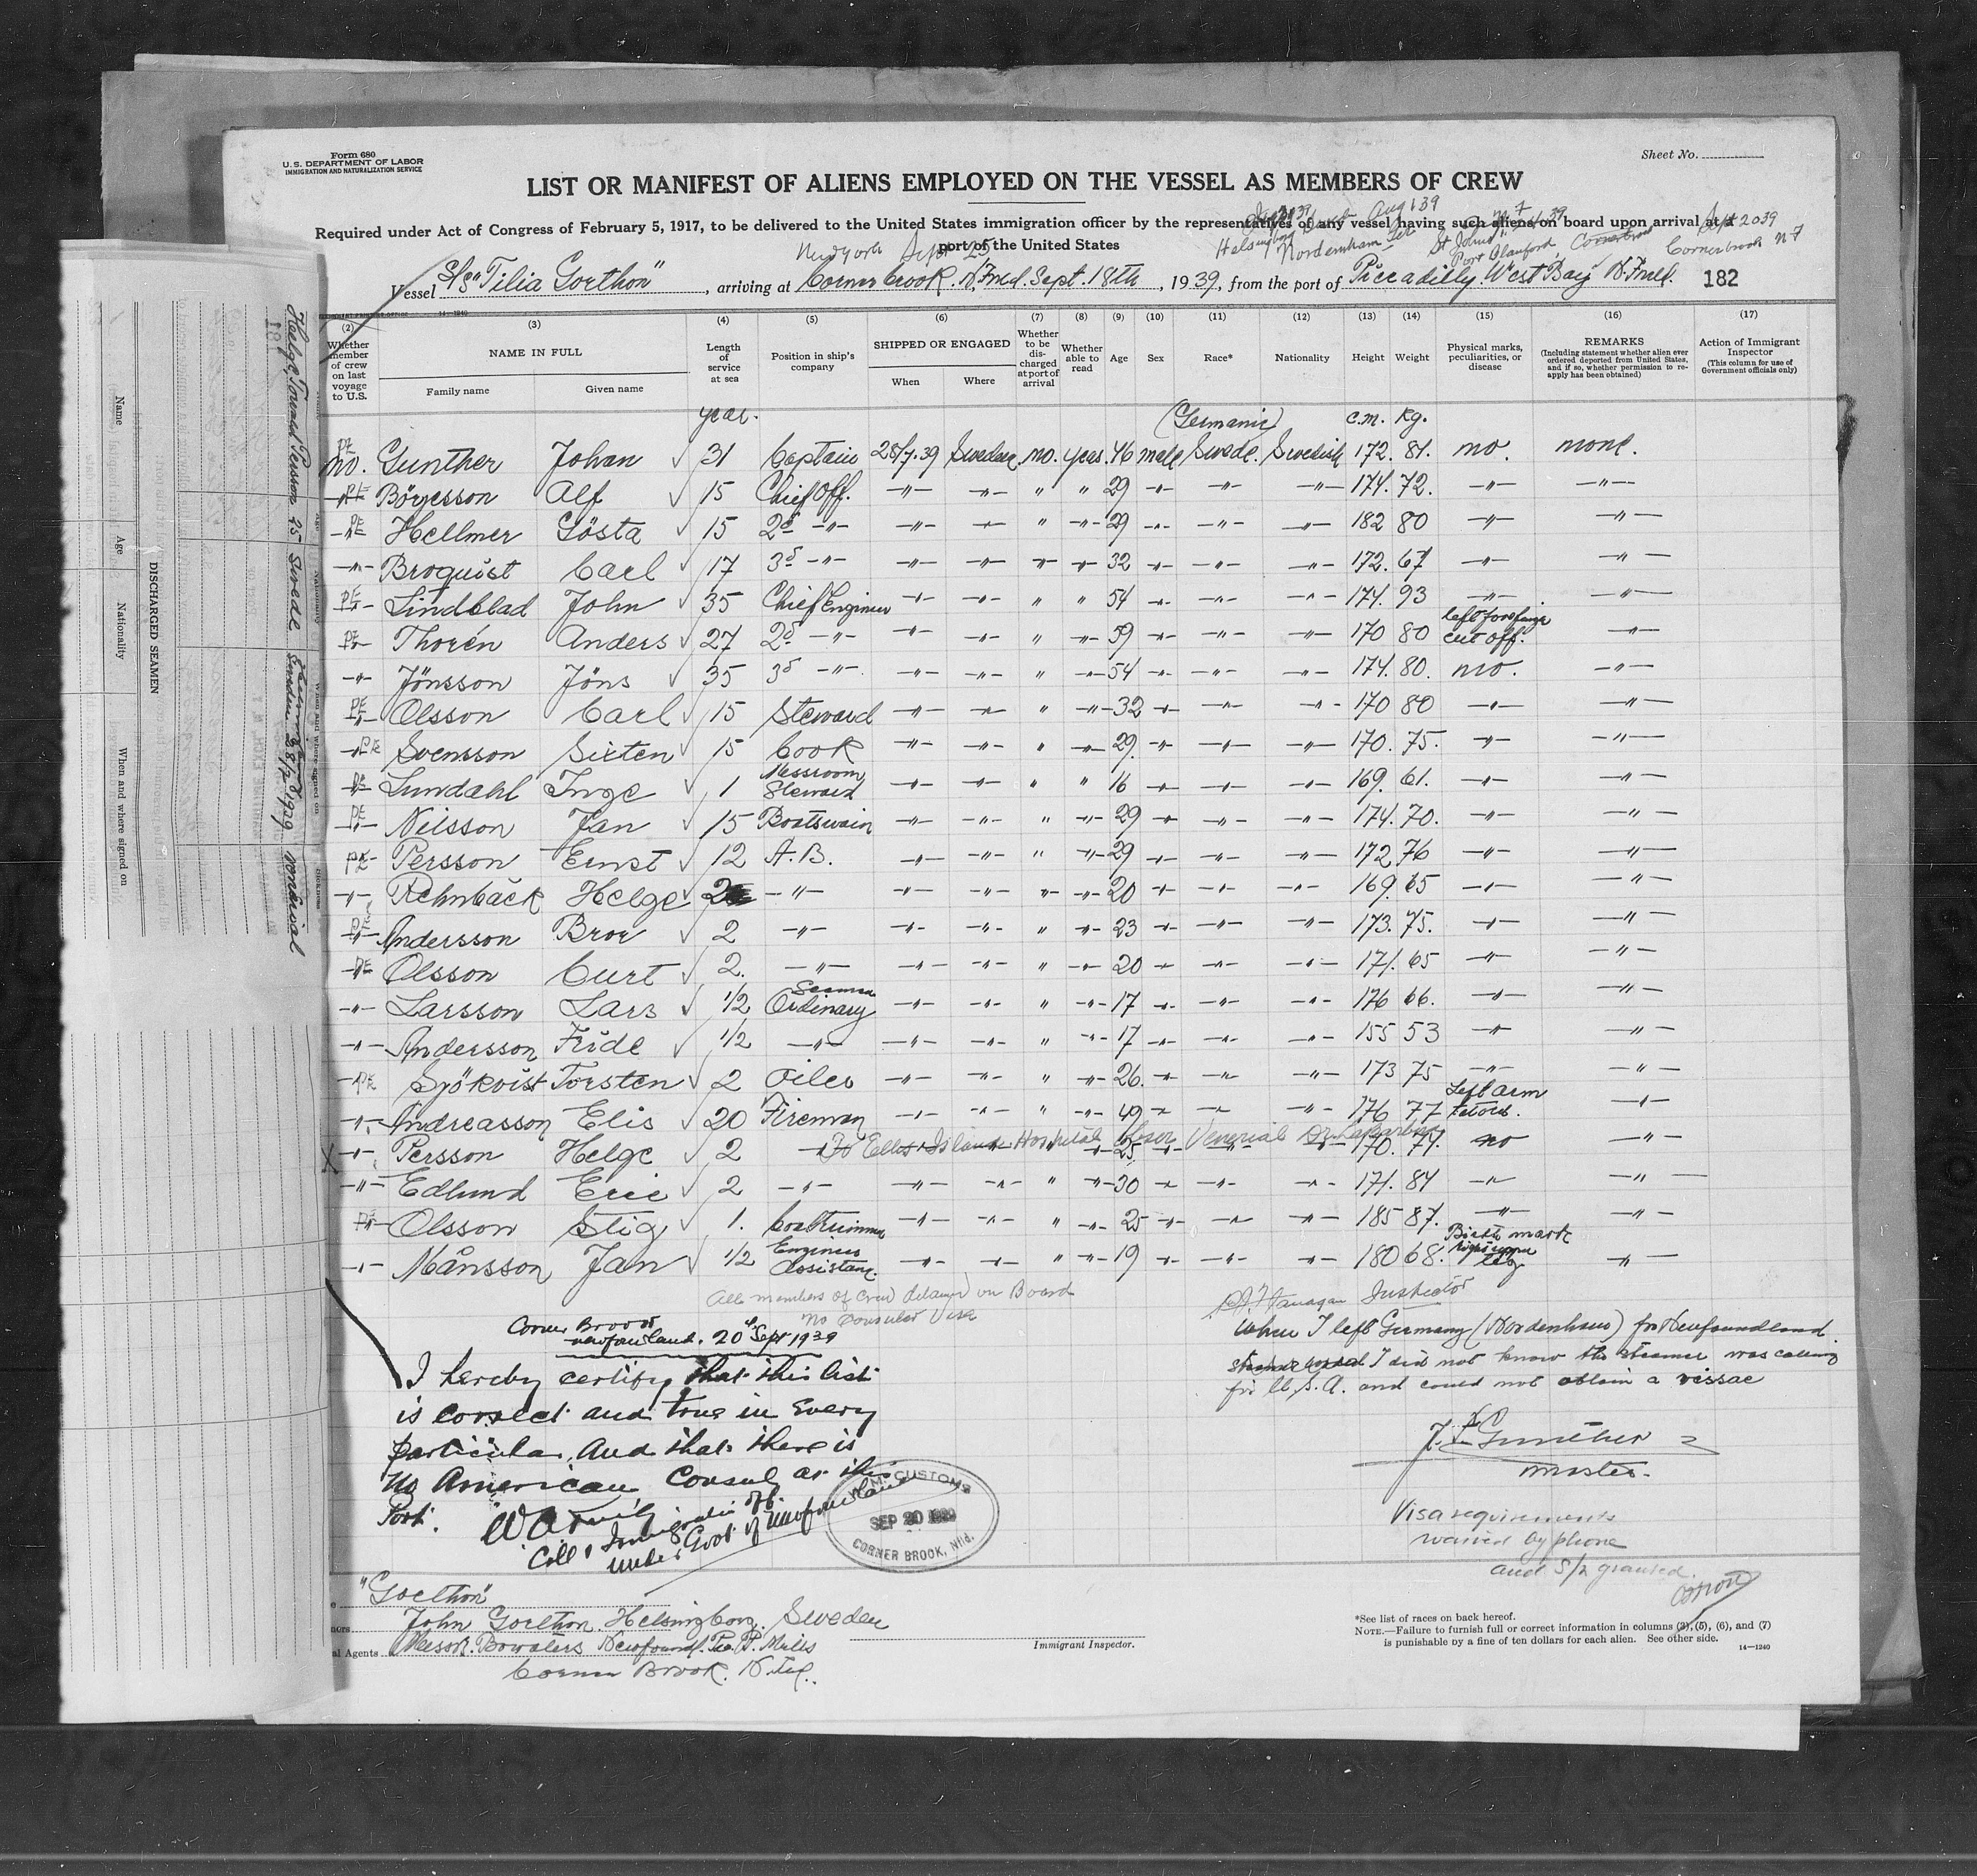 Form 680
U.S. DEPARTMENT OF LABOR
IMMIGRATION AND NATURALIZATION SERVICE
Sheet No.
LIST OR MANIFEST OF ALIENS EMPLOYED ON THE VESSEL AS MEMBERS OF CREW
Required under Act of Congress of February 5, 1917, to be delivered to the United States immigration officer by the representatives of any vessel having such aliens on board upon arrival at a
port of the United States
New York Sept 25
Aug 1 39
Nordenham
Sept 20 39
Cornerbrook NF
Vessel S/S "Tilia Gorthon", arriving at Corner brook. N.Fnld. Sept. 18th, 1939, from the port of Piccadilly West Bay N.Fnld. 182
(2) (3) (4) (5) (6) (7) (8) (9) (10) (11) (12) (13) (14) (15) (16) (17)
Whether member of crew on last voyage to U.S.
NAME IN FULL
Family name Given name
Length of service at sea
Position in ship's company
SHIPPED OR ENGAGED
When Where
Whether to be discharged at port of arrival
Whether able to read
Age Sex Race* Nationality Height Weight
Physical marks, peculiarities, or disease
REMARKS
(Including statement whether alien ever ordered deported from United States, and if so, whether permission to reapply has been obtained)
Action of Immigrant Inspector
(This column for use of Government officials only)
year. (Germanic) c.m. Kg.
no. Gunther Johan 31 Captain 28/7.39 Sweden no. yes. 46 male Swede. Swedish 172. 81. no. none.
PE Börjesson Alf 15 Chief Off. -"- -"- " " 29 -"- -"- -"- 174. 72. -"- -"-
PE Hellmer Gösta 15 2d -"- -"- -"- " -"- 29 -"- -"- -"- 182 80 -"- -"-
-"- Broquist Carl 17 3d -"- -"- -"- -"- -"- 32 -"- -"- -"- 172. 67 -"- -"-
PE Lindblad John 35 Chief Engineer -"- -"- " " 54 -"- -"- -"- 174. 93 -"- -"-
PE Thorén Anders 27 2d -"- -"- -"- " -"- 59 -"- -"- -"- 170 80 left forefinger cut off. -"-
-"- Jönsson Jöns 35 3d -"- -"- -"- " -"- 54 -"- -"- -"- 174. 80. no. -"-
PE Olsson Carl 15 Steward -"- -"- " -"- 32 -"- -"- -"- 170 80 -"- -"-
PE Svensson Sixten 15 Cook -"- -"- " -"- 29. -"- -"- -"- 170. 75. -"- -"-
PE Lundahl Inge 1 Messroom Steward -"- -"- " " 16 -"- -"- -"- 169. 61. -"- -"-
PE Nilsson Jan 15 Boatswain -"- -"- " -"- 29 -"- -"- -"- 174. 70. -"- -"-
PE Persson Ernst 12 A.B. -"- -"- " -"- 29 -"- -"- -"- 172 76 -"- -"-
-"- Rehnbäck Helge 2 -"- -"- -"- -"- -"- 20 -"- -"- -"- 169. 65 -"- -"-
PE Andersson Bror 2 -"- -"- -"- " -"- 23 -"- -"- -"- 173. 75. -"- -"-
PE Olsson Curt 2. -"- -"- -"- " -"- 20 -"- -"- -"- 171. 65 -"- -"-
-"- Larsson Lars 1/2 Ordinary Seaman -"- -"- " -"- 17 -"- -"- -"- 176 66. -"- -"-
-"- Andersson Fride 1/2 -"- -"- -"- " -"- 17 -"- -"- -"- 155 53 -"- -"-
PE Sjökvist Torsten 2 Oiler -"- -"- " -"- 26. -"- -"- -"- 173 75 -"- -"-
-"- Andreasson Elis 20 Fireman -"- -"- " -"- 49 -"- -"- -"- 176 77 Left arm -"-
X -"- Persson Helge 2 To Ellis Island Hospital Venerial 25 170. 74. no -"-
-"- Edlund Eric 2 -"- -"- -"- " -"- 30 -"- -"- -"- 171. 84 -"- -"-
PE Olsson Stig 1. Coaltrimmer -"- -"- " -"- 25 -"- -"- -"- 185 87. -"- -"-
-"- Månsson Jan 1/2 Engineer Assistant. -"- -"- " -"- 19 -"- -"- -"- 180 68. Birth mark right upper leg -"-
All members of crew detained on Board
No Consular Visa
Inspector
Corner Brook
Newfoundland. 20th Sept 1939
I hereby certify that this list
is correct and true in every
particular, and that there is
no American Consul at this
Port.
Coll & Immigration Off.
under Govt of Newfoundland
H.M. CUSTOMS
SEP 20 1939
CORNER BROOK, Nfld.
When I left Germany (Nordenham) for Newfoundland
I did not know the steamer was calling
for U.S.A. and could not obtain a vissae
Gunther
Master.
Visa requirements
waived by phone
and S/L granted.
"Gorthon"
John Gorthon. Helsingborg. Sweden
al Agents Messrs. Bowaters Newfoundl. Pu. P. Mills
Corner Brook. N.Fld.
Immigrant Inspector.
*See list of races on back hereof.
NOTE.—Failure to furnish full or correct information in columns (3), (5), (6), and (7)
is punishable by a fine of ten dollars for each alien. See other side.
14—1240
DISCHARGED SEAMEN
Name Age Nationality When and where signed on
Helge Persson 25 Swede Sweden 28/7 1939 venerial